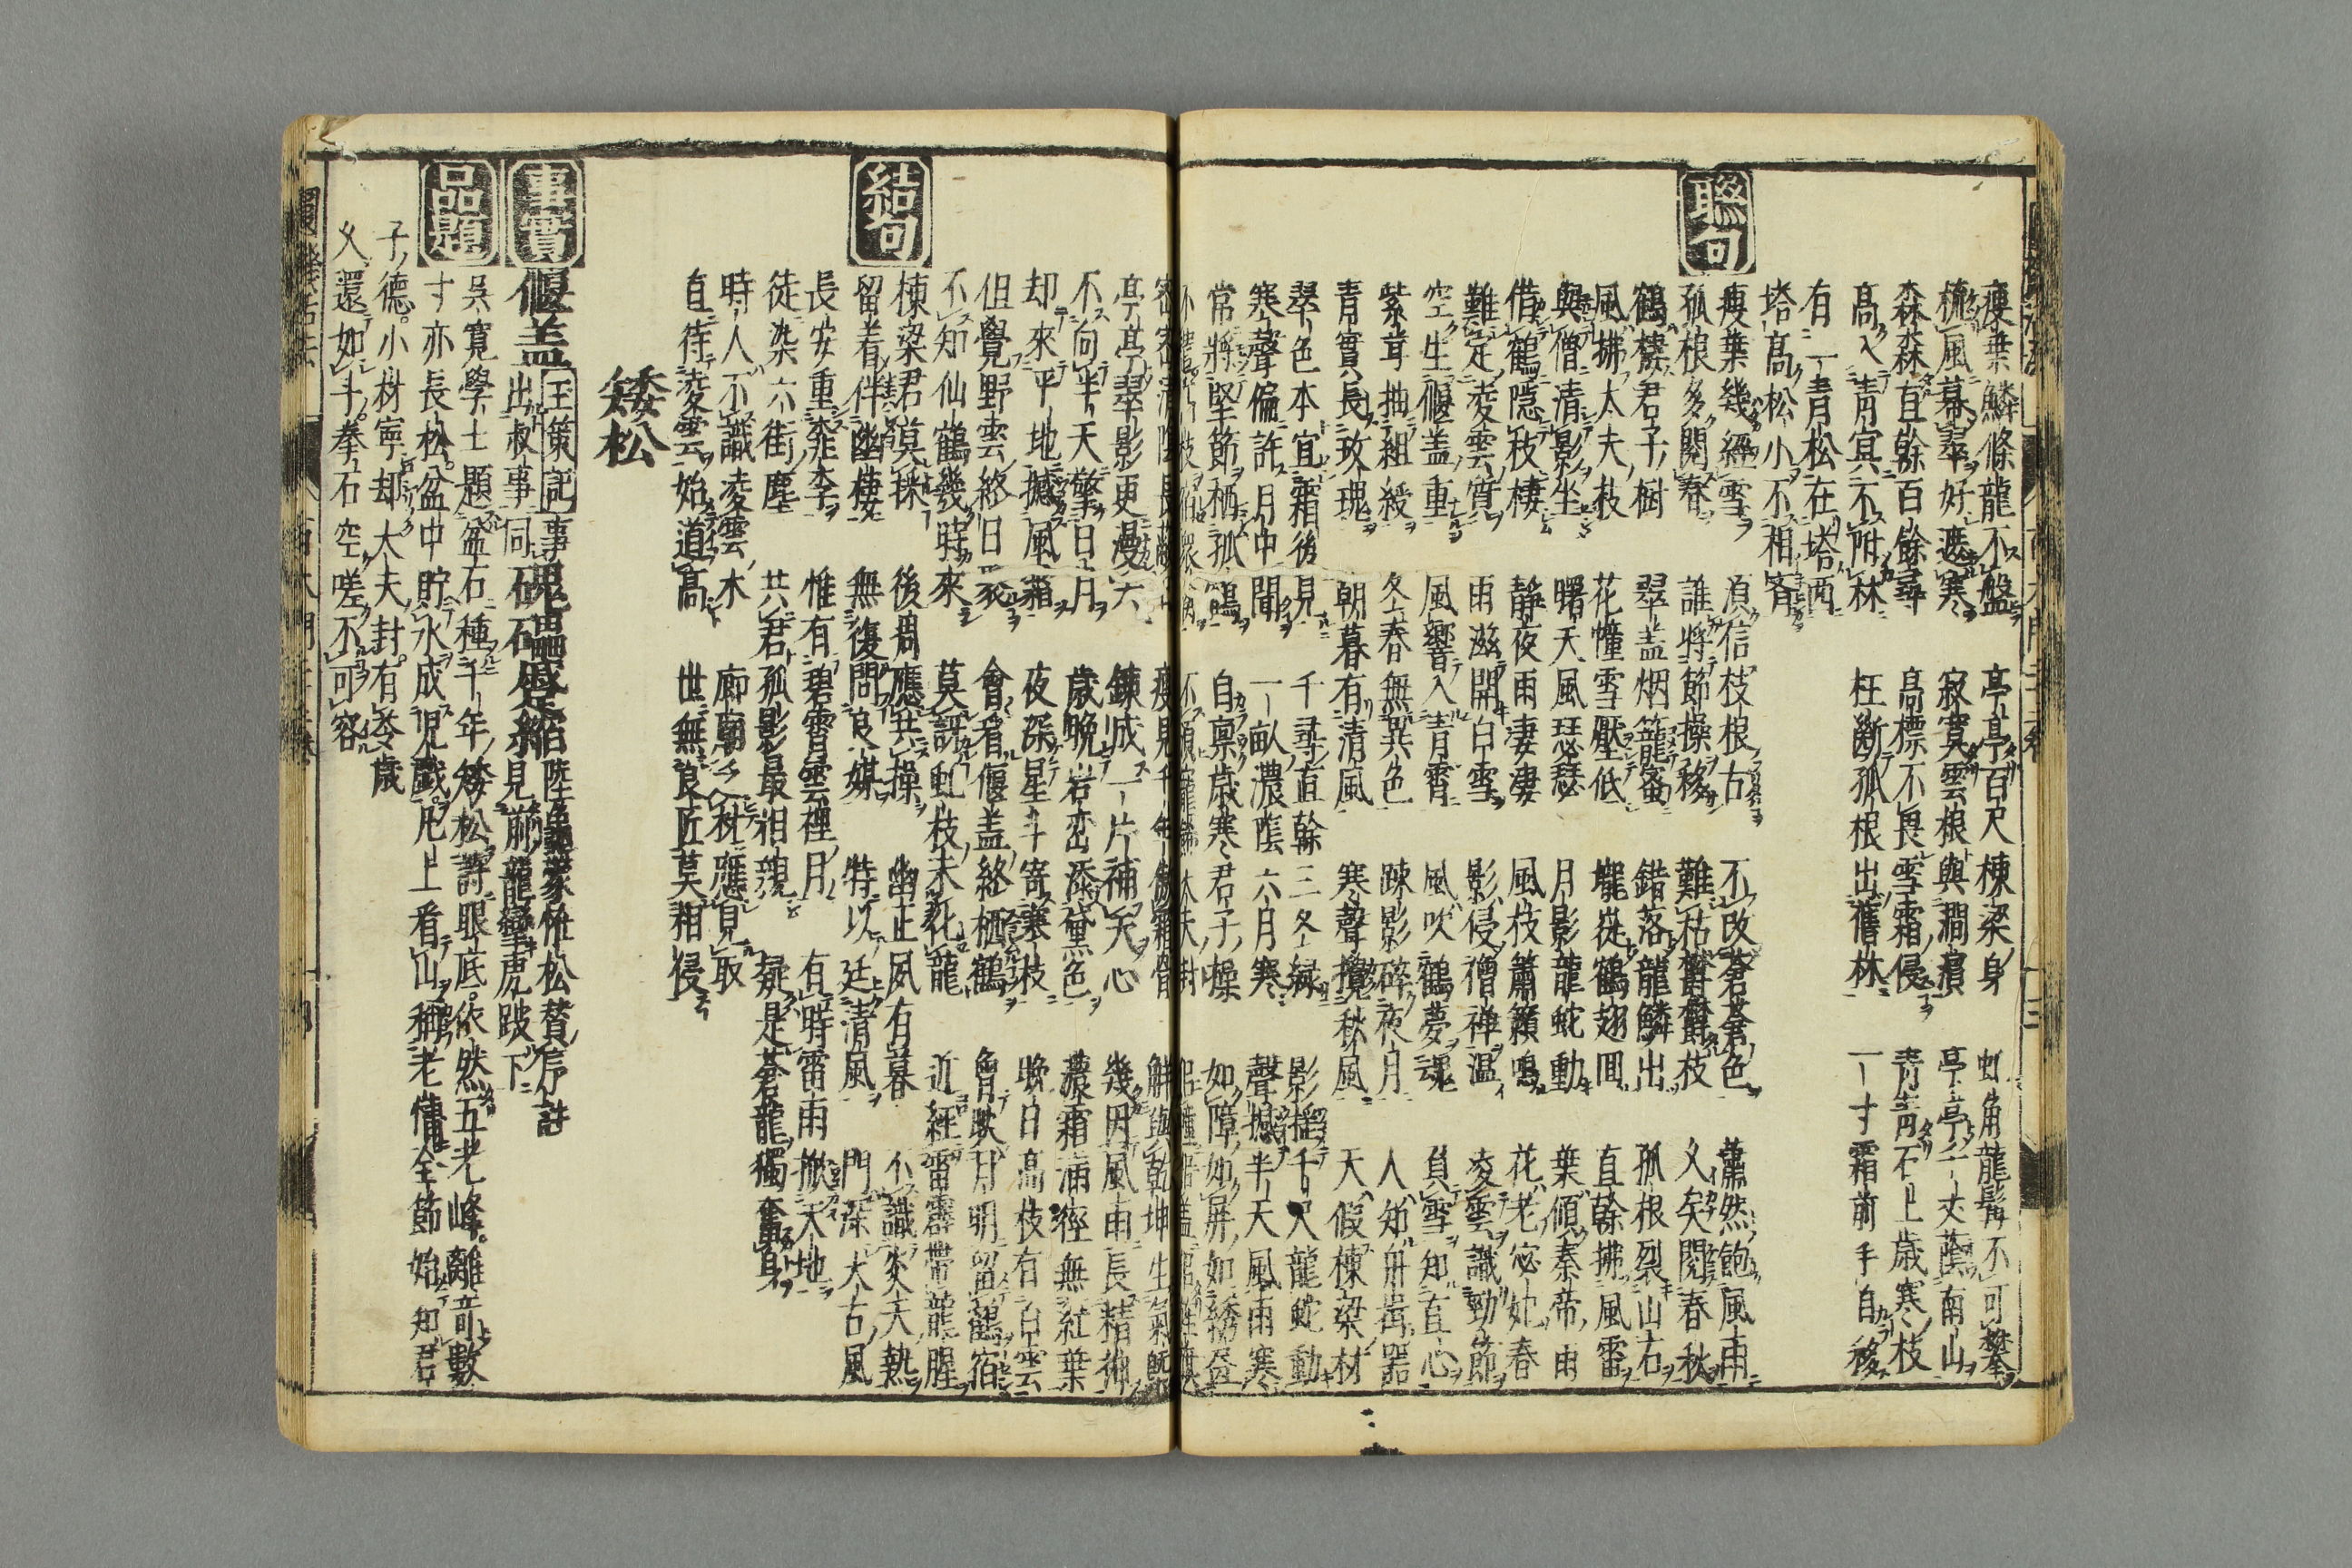 瘦葉鱗條龍不盤 亭亭百尺棟梁身 虬角龍髯不可攀
梳風暮翠好遮寒 寂寞雲根與澗濱 亭亭千丈蔭南山
森森直幹百餘尋 高標不畏雪霜侵 青青石上歲寒枝
高入青冥不附林 枉斷孤根出舊林 一寸霜前手自移
有一青松在塔西
塔高松小不相齊
聯句
瘦葉幾經雪 須信枝根古 不改蒼蒼色 蕭然飽風雨
孤根多閱春 誰將節操移 難枯欝欝枝 久矣閱春秋
鶴棲君子樹 翠盖烟籠密 錯落龍鱗出 孤根裂山石
風拂大夫枝 花幢雪壓低 襱褷鶴翅囬 直幹拂風雷
與僧清影坐 曙天風瑟瑟 月影龍蛇動 葉傾秦帝雨
借鶴隱枝棲 静夜雨凄凄 風枝簫籟鳴 花老宓妃春
難定凌雲質 雨滋開白雪 影侵禅温 凌雲識勁節
空生偃盖重 風響入青霄 風吹鶴夢魂 負雪知直心
紫茸抽組綬 冬春無異色 踈影碎夜月 人知舟楫器
青實長玫瑰 朝暮有清風 寒聲攪秋風 天假棟梁材
翠色本宜霜後見 千尋直幹三冬緑 影揺千尺龍蛇動
寒聲偏許月中聞 一畝濃隂六月寒 聲撼半天風雨寒
常將堅節栖孤鶴 自禀歳寒君子操 如障如屏如綉畫
密密清隂長 瘦見千年 觧與乾坤生氣
亭亭翠影更漫天 錬成一片補天心 幾因風雨長精神
不向半天擎日月 歳晚岩峦添黛色 濃霜滿徑無紅葉
却來平地撼風霜 夜深星斗寄寒枝 晚日高枝有白雲
但覺野雲終日聚 會看偃盖終栖鶴 曾映月明留鶴宿
不知仙鶴幾時來 莫訝虬枝未化龍 近經雷霹帶龍腥
結句
棟梁君莫採 後凋應共操 幽正夙有暮 不識炎天熱
留着伴幽棲 無復問良媒 特以廷清風 門深太古風
長安重桃李 惟有碧霄雲裡月 有時雷雨掀天地
徒染六街塵 共君孤影最相親 疑是蒼龍獨奮身
時人不識凌雲木 廊廟乏材應見取
直待凌雲始道高 世無良匠莫相侵
矮松
事實
偃盖 王策記 事 磈磊蹙縮 陸龜蒙恠松賛序註
出叙事同 見前 龍攣虎跛下
品題
吳寛學士題盆石種千年矮松詩眼底依然五老峰離竒數
寸亦長松盆中貯水成児戱几上看山稱老慵全節始知君
子德小材寜却大夫封有峚歳
久還如斗拳石空嗟不可容